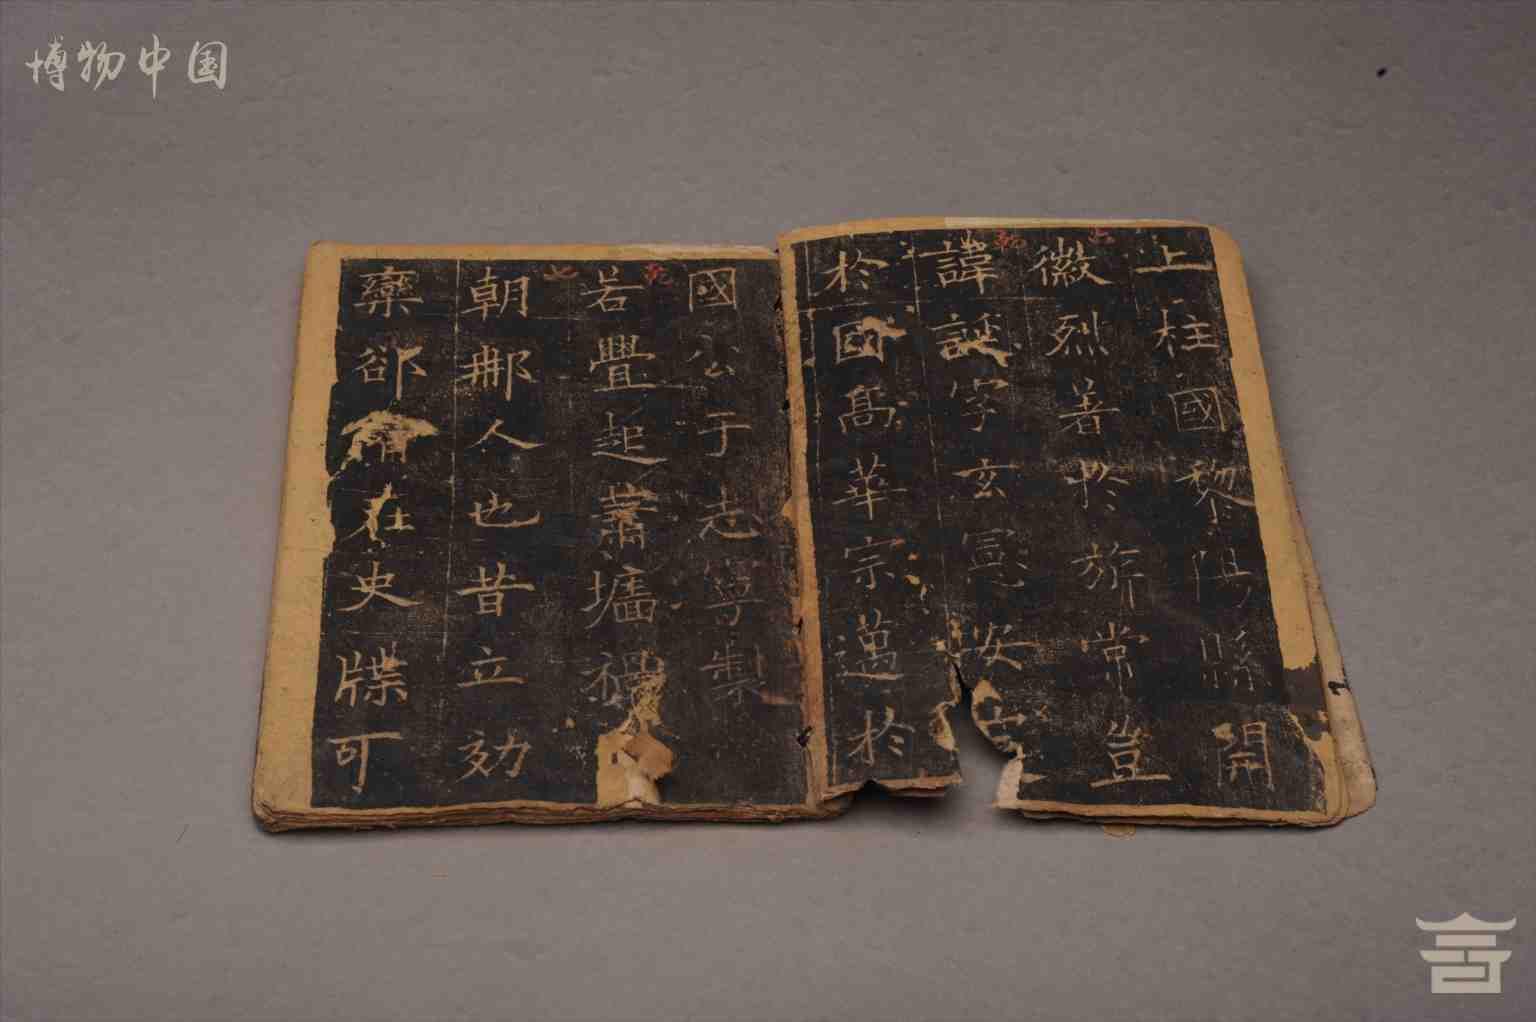 博物中国
上柱國黎陽縣開
徽烈著於旂常豈
諱誕字玄憲安定
於國高華宗邁於
國公于志寧製
若舋起蕭墻禍
朝那人也昔立効
欒郤在史牒可